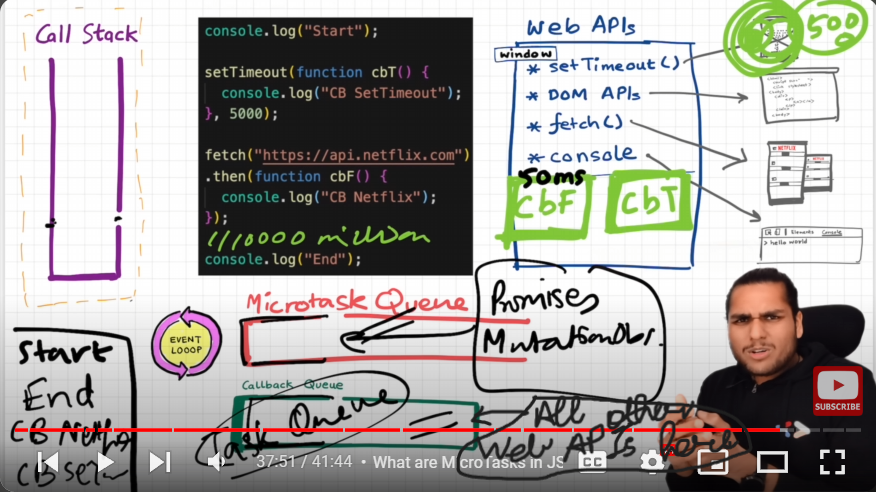 Call Stack
console.log("Start");
setTimeout(function cbT() {
console.log("CB SetTimeout");
}, 5000);
fetch("https://api.netflix.com")
.then(function cbF() {
console.log("CB Netflix");
});
million
console.log("End");
Web APIs
window
* setTimeout()
* DOM APIs
* fetch()
* console
50ms
CbF
CbT
500
NETFLIX
Elements Console
> hello world
Microtask Queue
Promises
MutationObs.
EVENT
LOOOP
Callback Queue
Task Queue
All other
Web APIs
Start
End
CB
CB
SUBSCRIBE
37:51 / 41:44 • What are MicroTasks in JS
CC